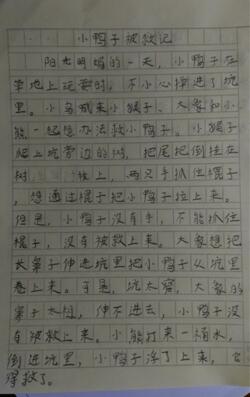 小鸭子被救记
阳光明媚的一天，小鸭子在
草地上玩耍时，不小心掉进了坑
里。小鸟喊来小猴子、大象和小
熊一起想办法救小鸭子。小猴子
爬上坑旁边的树，把尾把倒挂在
树上，两只手抓住棍子
，想通过棍子把小鸭子拉上来。
但是，小鸭子没有手，不能抓住
棍子，没有被救上来。大象想把
长鼻子伸进坑里把小鸭子从坑里
卷上来。可是，坑太窄，大象的
鼻子太粗，伸不进去，小鸭子没
有被救上来。小熊打来一桶水，
倒进坑里，小鸭子浮了上来，它
得救了。